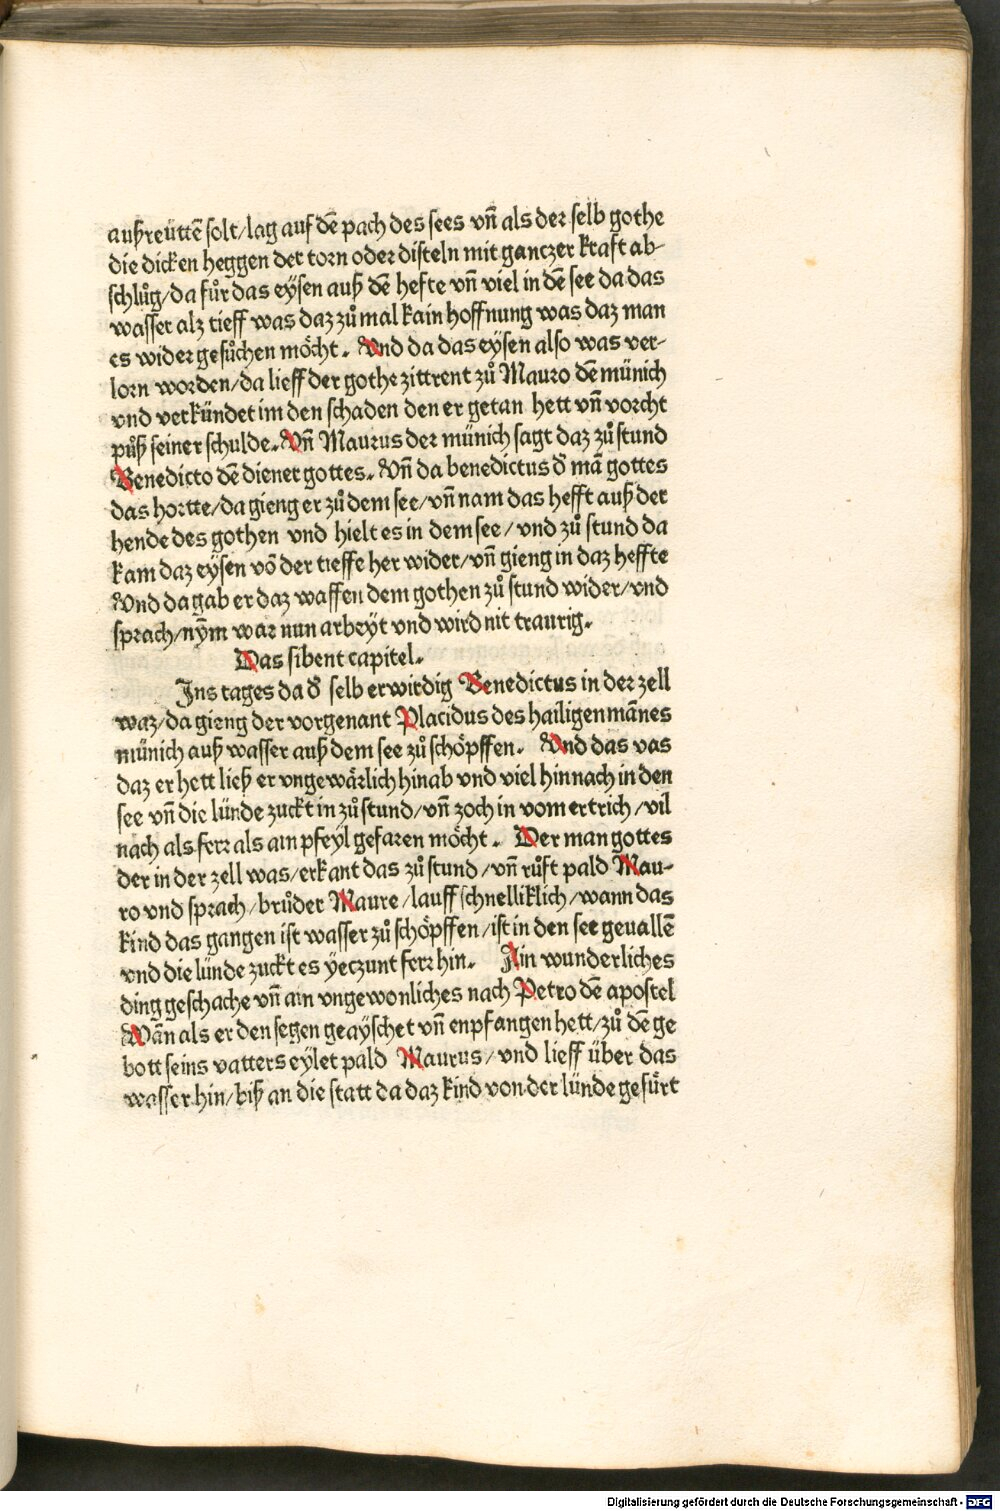 außreüttē solt/lag auf dē pach des sees vn̄ als der selb gothe
die dicken heggen der torn oder disteln mit ganczer kraft ab-
schlůg/da fůr das eysen auß dē hefte vn̄ viel in dē see da das
wasser alz tieff was daz zů mal kain hoffnung was daz man
es wider gesůchen möcht. Vnd da das eysen also was ver-
lorn worden/da lieff der gothe zittrent zů Mauro dē münich
vnd verkündet im den schaden den er getan hett vn̄ vorcht
půß seiner schulde. Vn̄ Maurus der münich sagt daz zů stund
Benedicto dē diener gottes. Vn̄ da benedictus d̄ mā gottes
das hortte/da gieng er zů dem see/vn̄ nam das hefft auß der
hende des gothen vnd hielt es in dem see/vnd zů stund da
kam daz eysen vō der tieffe her wider/vn̄ gieng in daz heffte
Vnd da gab er daz waffen dem gothen zů stund wider/vnd
sprach/nym̄ war nun arbeyt vnd wird nit traurig.
Das sibent capitel.
Ins tages da d̄ selb erwirdig Benedictus in der zell
waz/da gieng der vorgenant Placidus des hailigen mānes
münich auß wasser auß dem see zů schöpffen. Vnd das vas
daz er hett ließ er vngewärlich hinab vnd viel hinnach in den
see vn̄ die lünde zuckt in zů stund/vn̄ zoch in vom ertrich/vil
nach als ferr als ain pfeyl gefaren möcht. Der man gottes
der in der zell was/erkant das zů stund/vn̄ růft pald Mau-
ro vnd sprach/brůder Maure/lauff schnelliklich/wann das
kind das gangen ist wasser zů schöpffen/ist in den see geuallē
vnd die lünde zuckt es yeczunt ferr hin. Ain wunderliches
ding geschache vn̄ ain vngewonliches nach Petro dē apostel
Wān als er den segen geayschet vn̄ enpfangen hett/zů dē ge
bott seins vatters eylet pald Maurus/vnd lieff über das
wasser hin/biß an die statt da daz kind von der lünde gefürt
Digitalisierung gefördert durch die Deutsche Forschungsgemeinschaft - DFG